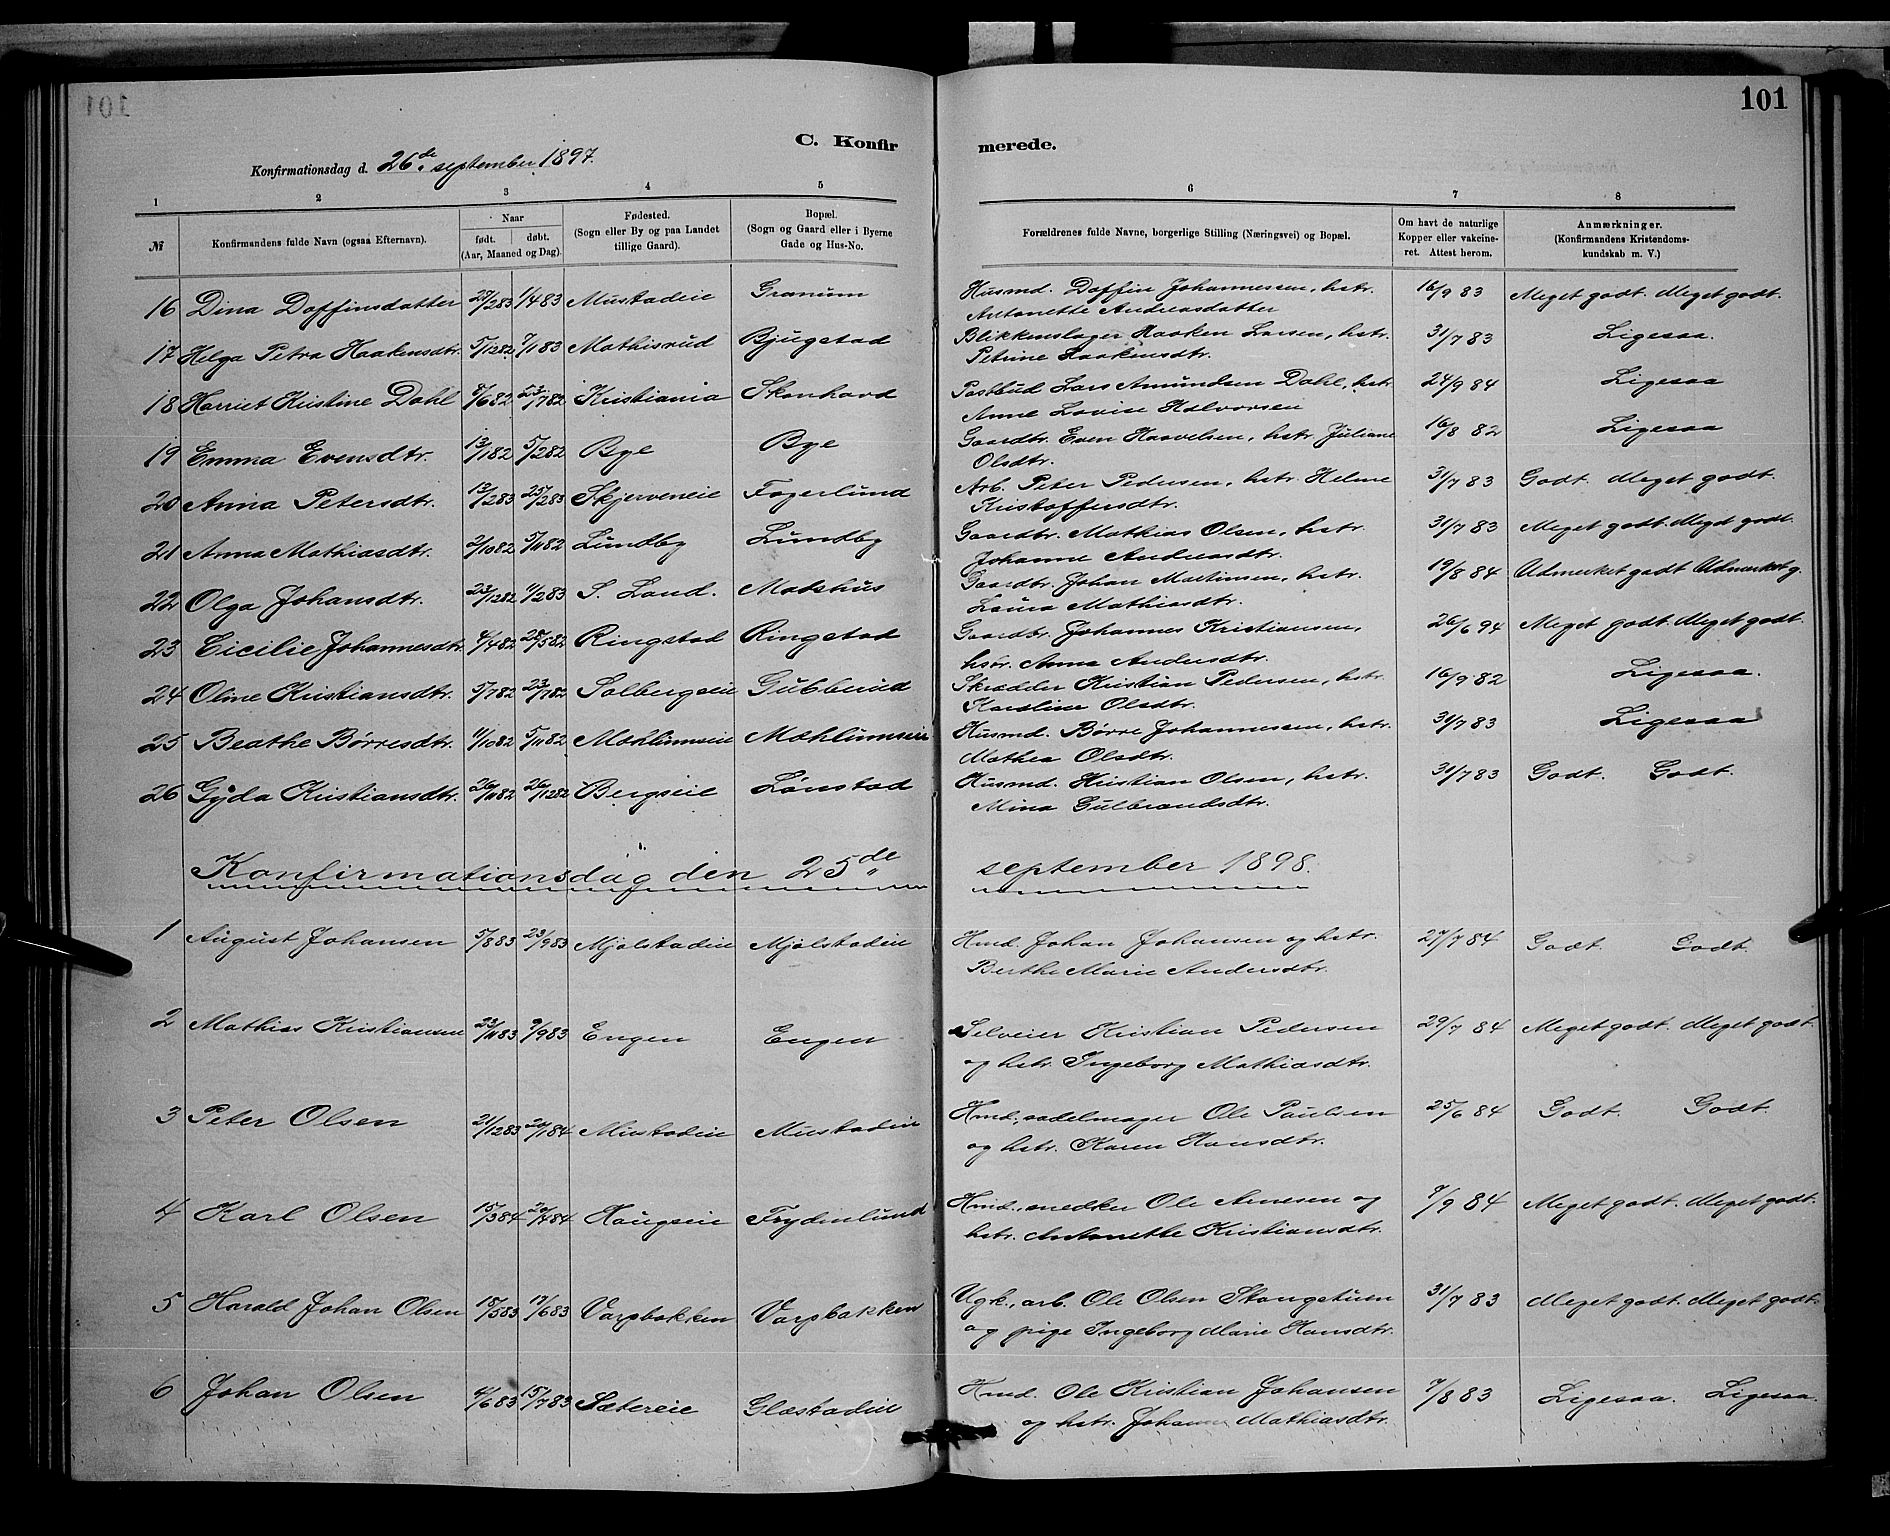 101
C. Konfirmerede.
Konfirmationsdag d. 26de september 1897.
1 2 3 4 5 6 7 8
№ Konfirmandens fulde Navn (ogsaa Efternavn). Naar født. døbt. (Aar, Maaned og Dag). Fødested. (Sogn eller By og paa Landet tillige Gaard). Bopæl. (Sogn og Gaard eller i Byerne Gade og Hus-No. Forældrenes fulde Navne, borgerlige Stilling (Næringsvei) og Bopæl. Om havt de naturlige Kopper eller vakcineret. Attest herom. Anmærkninger. (Konfirmandens Kristendomskundskab m. V.)
16 Dina Doffinsdatter 27/2 83 1/4 83 Mustadeie Granum Husmd. Doffin Johannesen, hstr. 16/9 83 Meget godt. Meget godt.
Antonette Andreasdatter
17 Helga Petra Haakensdtr. 5/12 82 7/1 83 Mathisrud Bjugstad Blikkenslager Haaken Larsen, hstr. 31/7 83 Ligesaa.
Petrine Haakensdtr.
18 Harriet Kristine Dahl 8/6 82 23/7 82 Kristiania Skonhovd Postbud Lars Amundsen Dahl, hstr. 24/9 84 Ligesaa
Anne Lovise Halvorsen
19 Emma Evensdtr. 13/1 82 5/2 82 Bye Bye Gaardbr. Even Haavelsen, hstr. Juliane 16/8 82 Ligesaa
Olsdtr.
20 Anna Petersdtr. 12/2 83 25/2 83 Skjerveneie Fagerlund Arb. Peter Pedersen, hstr. Helene 31/7 83 Godt. Meget godt.
Kristoffersdtr.
21 Anna Mathiasdtr. 2/10 82 5/11 82 Lundby Lundby Gaardbr. Mathias Olsen, hstr. 31/7 83 Meget godt. Meget godt.
Johanne Andreasdtr.
22 Olga Johansdtr. 23/12 82 11/2 83 S. Land. Matshus Gaardbr. Johan Martinsen, hstr. 19/8 84 Udmerket godt Udmerket g.
Laura Mathiasdtr.
23 Cicilie Johannesdtr. 4/4 82 28/5 82 Ringstad Ringstad Gaardbr. Johannes Kristiansen, 26/6 94 Meget godt. Meget godt.
hstr. Anna Andersdtr.
24 Oline Kristiansdtr. 5/7 82 23/7 82 Solbergeie Gubberud Skrædder Kristian Pedersen, hstr. 16/9 82 Ligesaa.
Karoline Olsdtr.
25 Beathe Børresdtr. 4/10 82 5/11 82 Møhlumseie Møhlumseie Husmd. Børre Johannessen, hstr. 31/7 83 Ligesaa
Mathea Olsdtr.
26 Gyda Kristiansdtr. 26/11 82 26/12 82 Bergseie Lønstad Husmd. Kristian Olsen, hstr. 31/7 83 Godt. Godt.
Mina Gulbrandsdtr.
Konfirmationsdag den 25de september 1898.
1 August Johansen 5/8 83 23/9 83 Mjølstadeie Mjølstadeie Hmd. Johan Johansen og hstr. 27/7 84 Godt. Godt.
Berthe Marie Andersdtr.
2 Mathias Kristiansen 9/9 83 Engen Engen Selveier Kristian Pedersen 29/7 84 Meget godt. Meget godt.
og hstr. Ingeborg Mathiasdtr.
3 Peter Olsen 21/12 83 20/1 84 Mustadeie Mustadeie Hmd., sadelmager Ole Paulsen 25/6 84 Godt. Godt.
og hstr. Karen Hansdtr.
4 Karl Olsen 15/3 84 20/4 84 Haugseie Frydenlund Hmd., snedker Ole Arnesen og 7/9 84 Meget godt. Meget godt.
hstr. Antonette Kristiansdtr.
5 Harald Johan Olsen 18/5 83 17/6 83 Varpbakken Varpbakken Ugk., arb. Ole Olsen Stangstuen 31/7 83 Meget godt. Meget godt.
og pige Ingeborg Marie Hansdtr.
6 Johan Olsen 4/6 83 15/7 83 Sætereie Glæstadeie Hmd. Ole Kristian Johansen 7/8 83 Ligesaa. Ligesaa.
og hstr. Johanne Mathiasdtr.